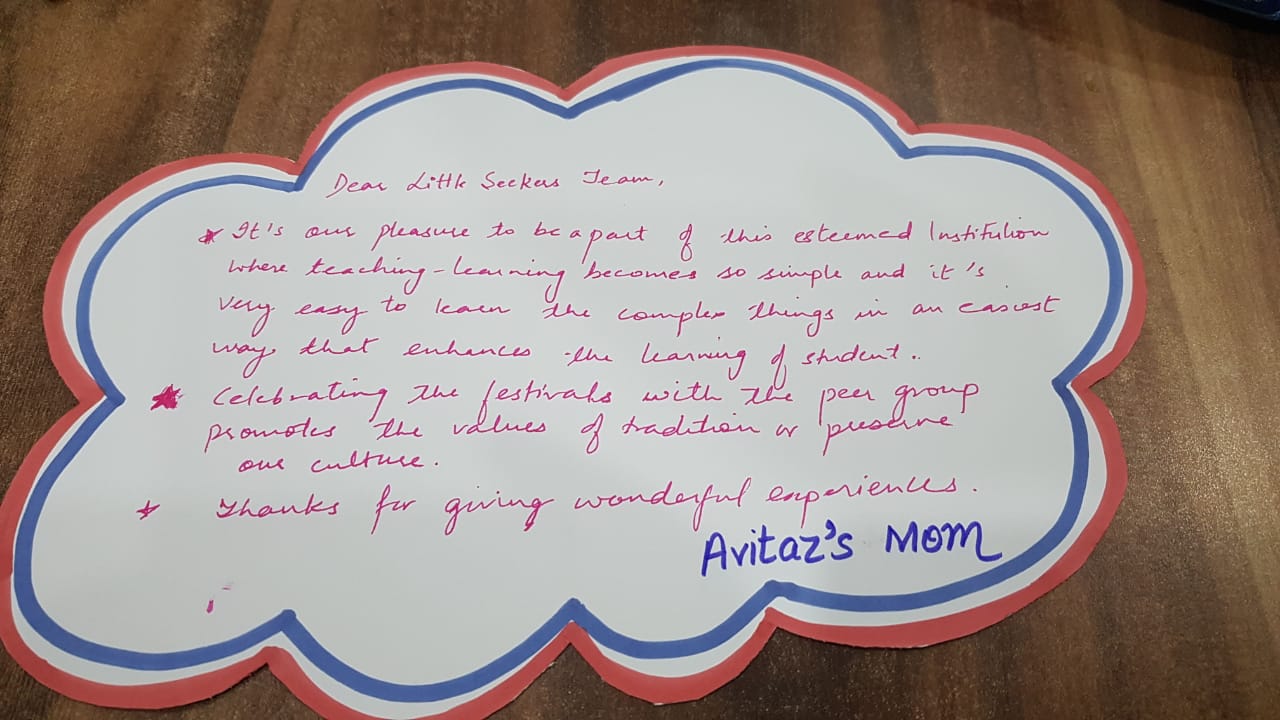 Dear Little Seekers Team,
* It's our pleasure to be a part of this esteemed Institution
where teaching-learning becomes so simple and it's
very easy to learn the complex things in an easiest
way that enhances the learning of student..
* Celebrating the festivals with the peer group
promotes the values of tradition or preserve
our culture.
* Thanks for giving wonderful experiences.
Avitaz's Mom